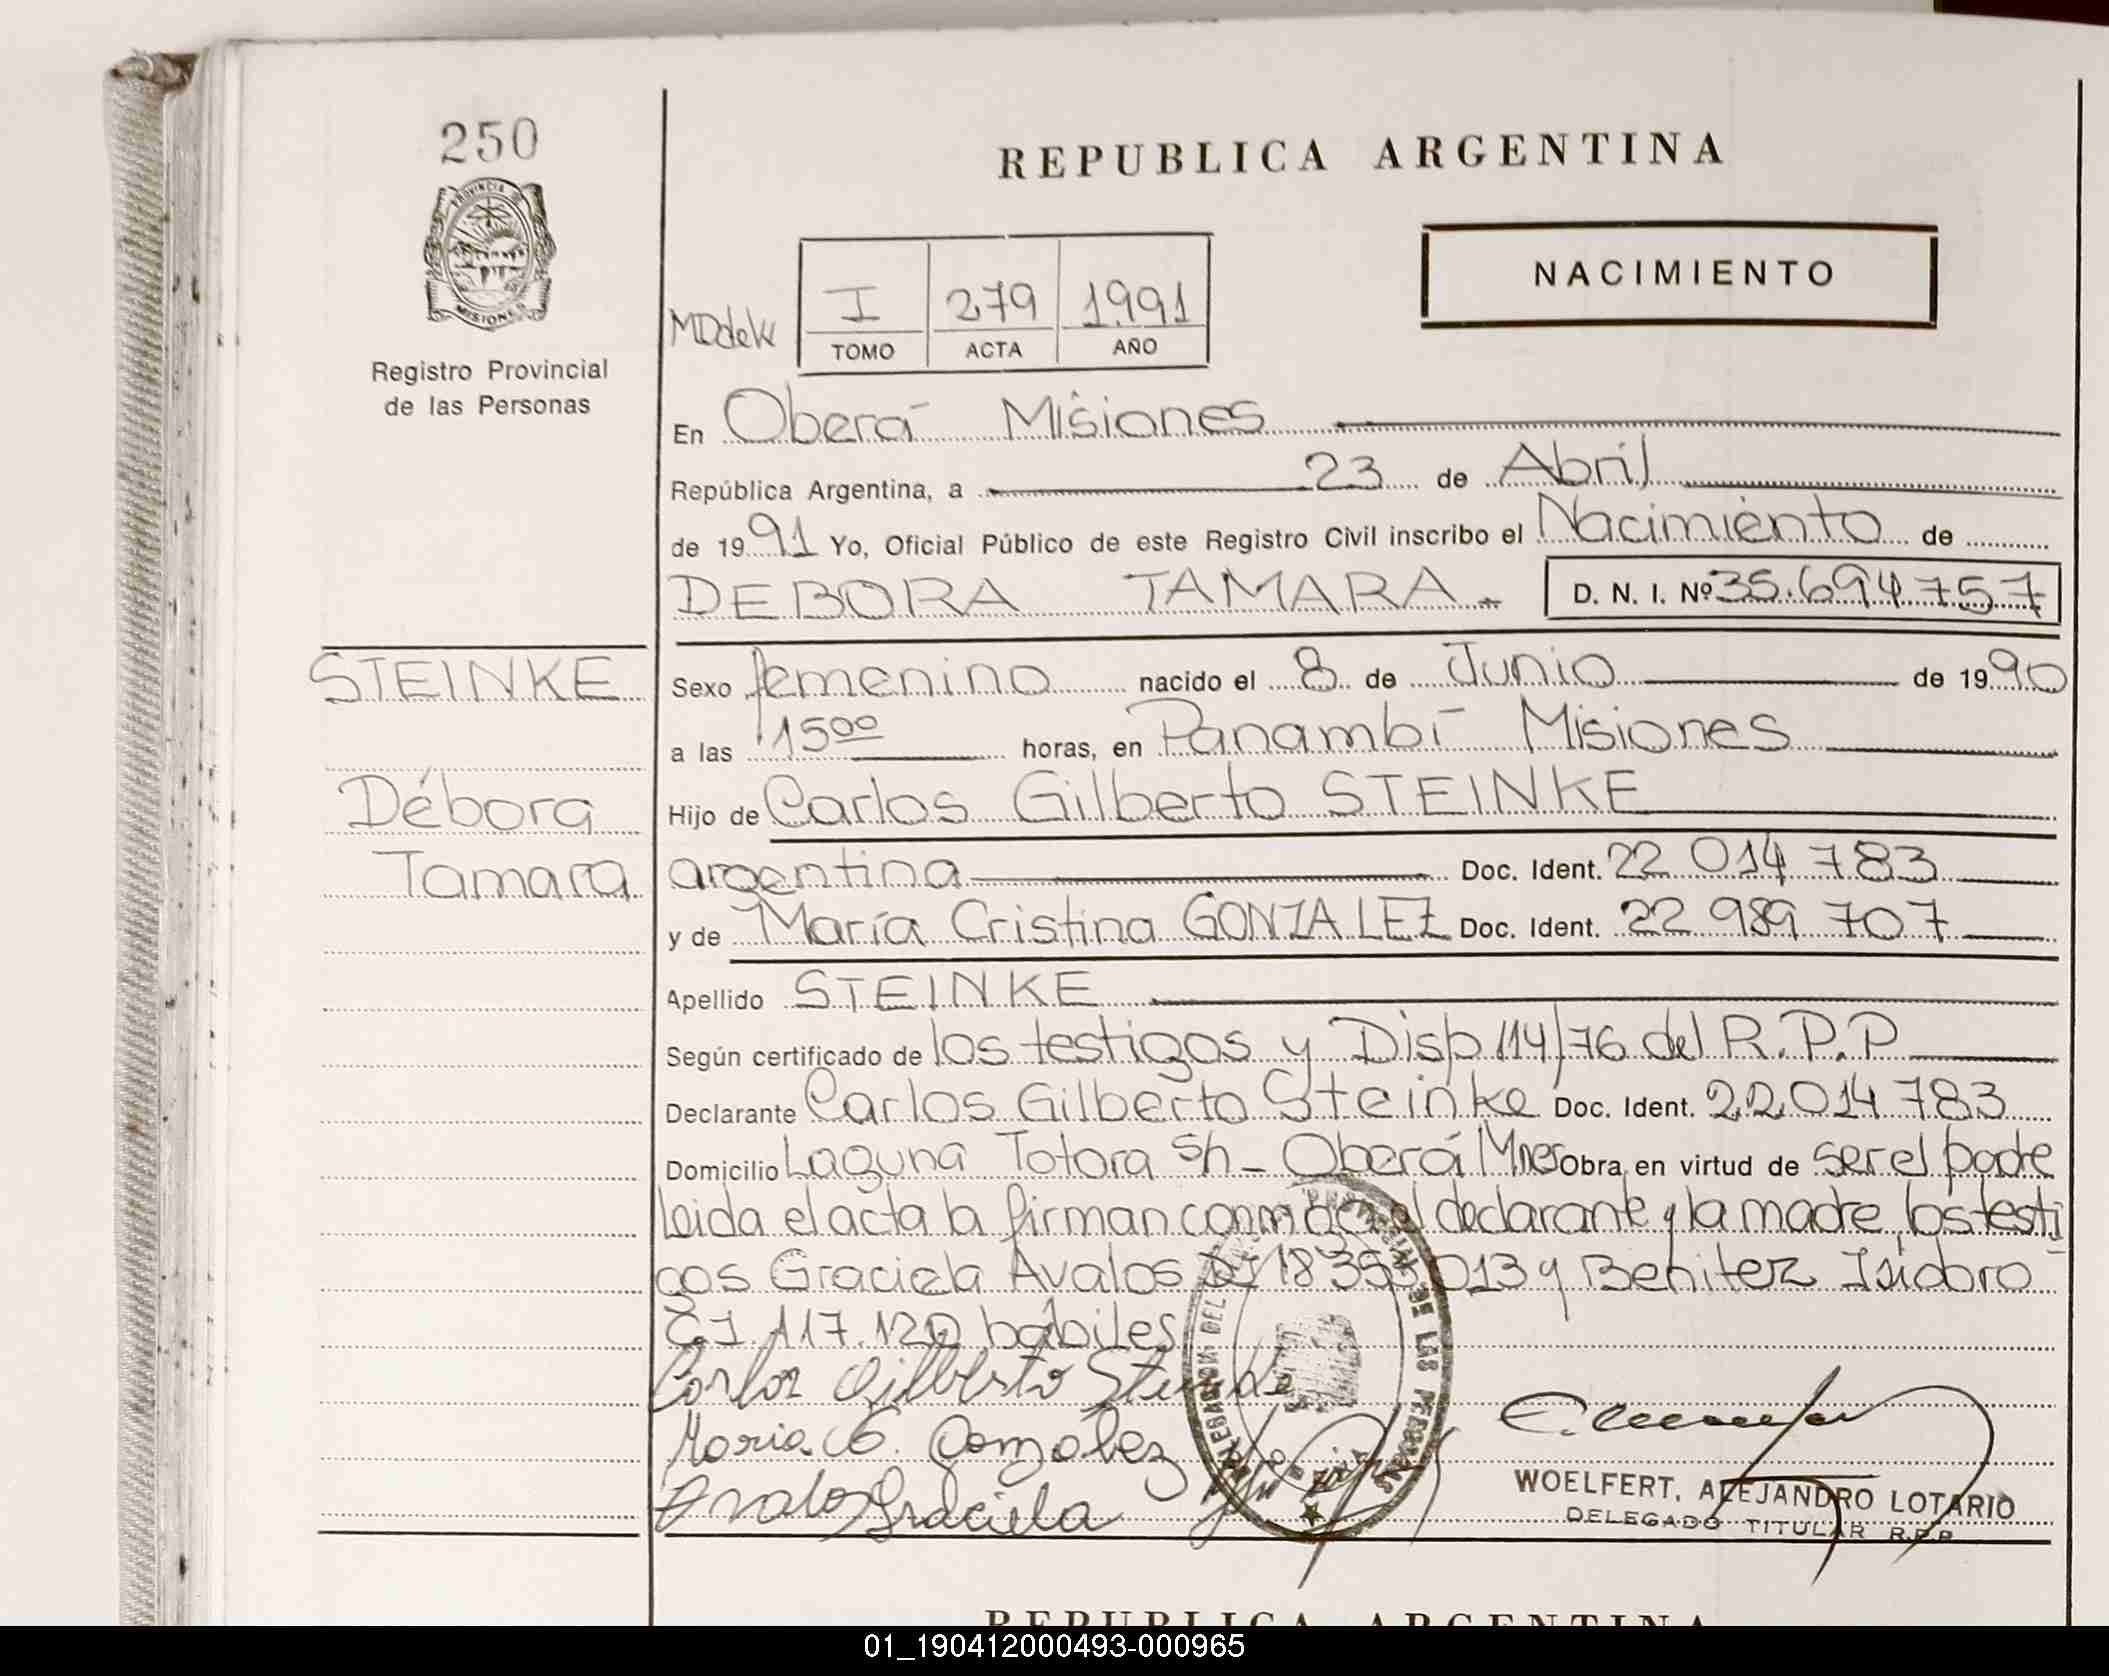 250
PROVINCIA DE
MISIONES
Registro Provincial
de las Personas
REPUBLICA ARGENTINA
NACIMIENTO
I 279 1991
TOMO ACTA AÑO
En Oberá Misiones
República Argentina, a 23 de Abril
de 1991 Yo, Oficial Público de este Registro Civil inscribo el Nacimiento de
DEBORA TAMARA. D. N. I. Nº 35.694.757
STEINKE
Débora
Tamara
Sexo femenino nacido el 8 de Junio de 1990
a las 15 00 horas, en Panambí Misiones
Hijo de Carlos Gilberto STEINKE
argentina Doc. Ident. 22 014 783
y de María Cristina GONZALEZ Doc. Ident. 22 989 707
Apellido STEINKE
Según certificado de los testigos y Disp 114/76 del R.P.P
Declarante Carlos Gilberto Steinke Doc. Ident. 22 014 783
Domicilio Laguna Totora s/n - Oberá Mnes Obra en virtud de ser el padre
leida el acta la firman conmigo el declarante y la madre, los testi
gos Graciela Avalos DI 18 353 013 y Benitez Isidoro
C.I. 117.120 hábiles
Carlos Gilberto Steinke
Maria C. Gonzalez
Avalos Graciela
DELEGACION DEL DE LAS PERSONAS
WOELFERT, ALEJANDRO LOTARIO
DELEGADO TITULAR R.P.P.
REPUBLICA ARGENTINA
01_190412000493-000965